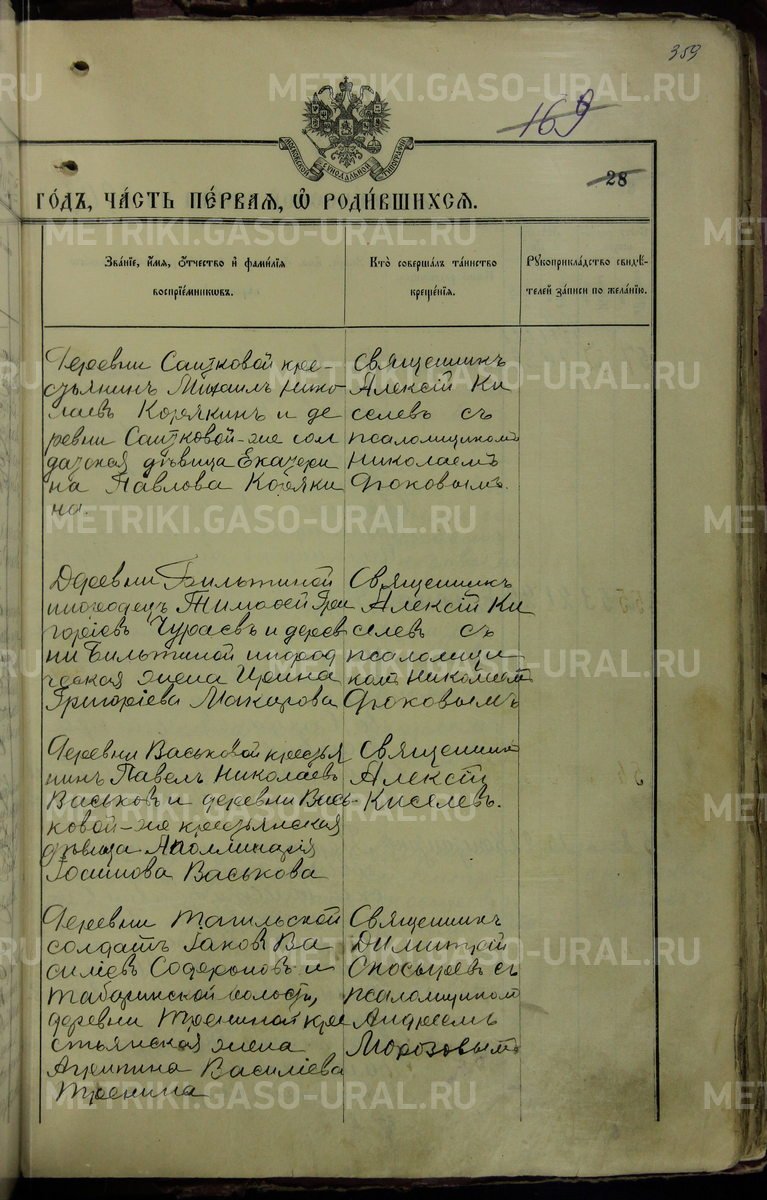 359
169
МОСКОВСКОЙ СѴНОДАЛЬНОЙ ТИПОГРАФІИ
28
ГО́ДЪ, ЧА́СТЬ ПЕ́РВАЯ, Ѽ РОДИ́ВШИХСЯ.
Зва́ніе, и́мя, о́тчество и фами́лія
воспріе́мниковъ.
Кто̀ соверша́лъ та́инство
креще́нія.
Рукоприкла́дство свидѣ́-
телей за́писи по жела́нію.
Деревни Саитковой кре-
стьянинъ Михаилъ Нико-
лаевъ Корякинъ и де
ревни Саитковой-же сол
датская дѣвица Екатери
на Павлова Коряки
на.
Священникъ
Алексій Ки
селевъ съ
псаломщикомъ
Николаемъ
Фоковымъ.
Деревни Бильтиной
инородецъ Тимоѳей Гри
горіевъ Чураевъ и дерев
ни Бильтиной инород
ческая жена Ирина
Григоріева Макарова
Священникъ
Алексій Ки
селевъ съ
псаломщи
комъ Николаемъ
Фоковымъ
Деревни Васьковой крестья
нинъ Павелъ Николаевъ
Васьковъ и деревни Вась-
ковой-же крестьянская
дѣвица Аполлинарія
Васькова
Священникъ
Алексій
Киселевъ.
Деревни Тагильской
солдатъ Іаковъ Ва
силіевъ и
Табаринской волости,
деревни кре
стьянская жена
Агрипина Василіева
Священникъ
Димитрій
съ
псаломщикомъ
Андреемъ
Морозовымъ
METRIKI.GASO-URAL.RU